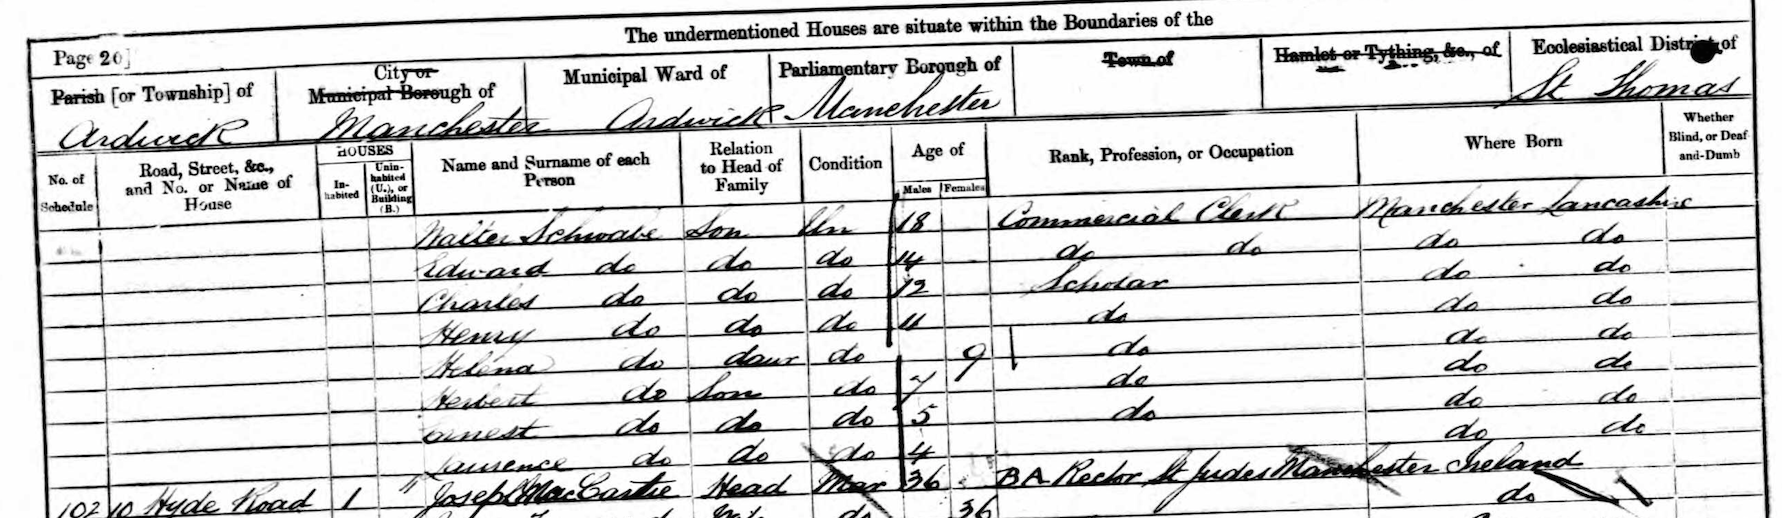 The undermentioned Houses are situate within the Boundaries of the
Page 20]
Parish [or Township] of City or Municipal Borough of Municipal Ward of Parliamentary Borough of Town of Hamlet or Tything, &c., of Ecclesiastical District of
Ardwick Manchester Ardwick Manchester St Thomas
No. of Schedule Road, Street, &c., and No. or Name of House HOUSES In-habited Unin-habited (U.), or Building (B.) Name and Surname of each Person Relation to Head of Family Condition Age of Males Females Rank, Profession, or Occupation Where Born Whether Blind, or Deaf and-Dumb
Walter Schwabe Son Un 18 Commercial Clerk Manchester Lancashire
Edward do do do 14 do do do do
Charles do do do 12 Scholar do do
Henry do do do 11 do do do
Helena do daur do 9 do do do
Herbert do Son do 7 do do do
Ernest do do do 5 do do do
Laurence do do do 4 do do
102 10 Hyde Road 1 Joseph MacCartie Head Mar 36 BA Rector St Judes Manchester Ireland
do 36 do